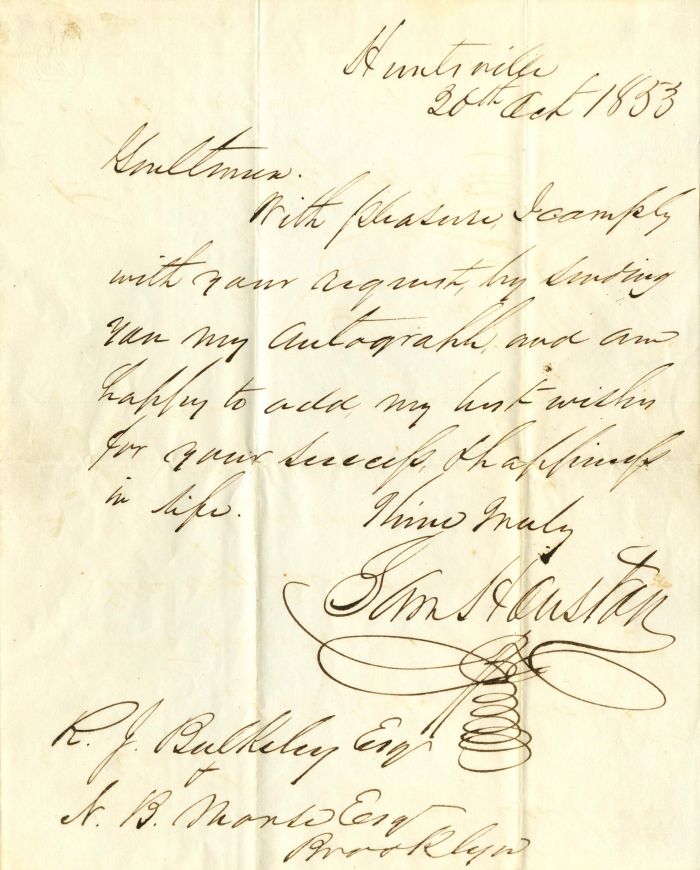 Huntsville
20th Oct 1853
Gentlemen.
With pleasure, I comply
with your request, by sending
you my autograph, and am
happy to add, my best wishes
for your success, & happiness
in life. Thine Truly
Sam Houston
R. J. Bulkeley Esqr
&
N. B. Morse Esqr
Brooklyn